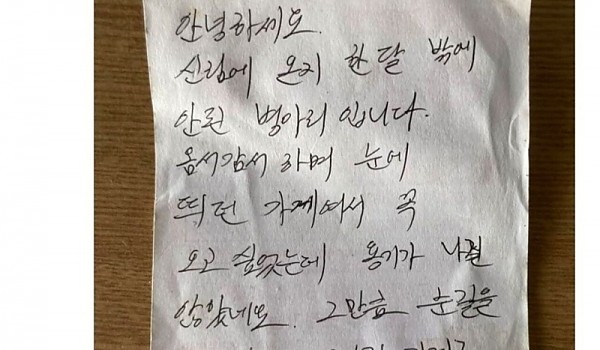 안녕하세요.
신림에 온지 한달 밖에
안된 병아리 입니다.
옴서감서 하며 눈에
띄던 가게여서 꼭
오고 싶었는데 용기가 나질
않았네요. 그만큼 눈길을